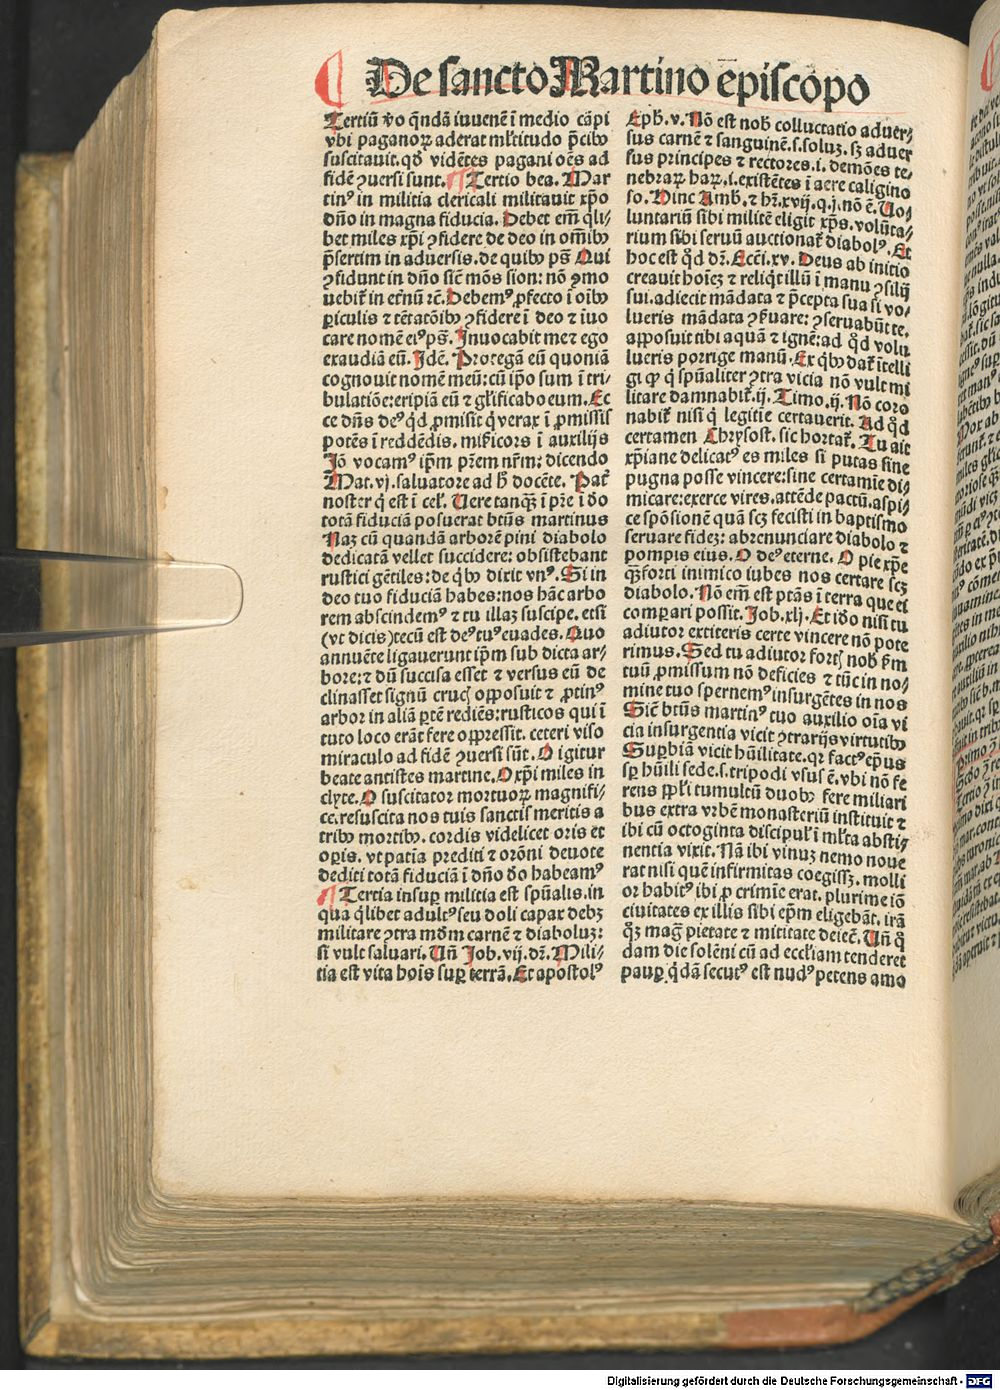 De sancto Martino ep̄iscopo
Tertiū v̄o q̄ndā iuuenē ī medio cāpi
vbi paganoꝝ aderat ml̄titudo p̄cibꝰ
suscitauit. qđ vidētes pagani oēs ad
fidē ꝯuersi sunt. ¶ Tertio bea. Mar
tinꝰ in militia clericali militauit xp̄o
dn̄o in magna fiducia. Debet em̄ q̄li
bet miles xp̄i ꝯfidere de deo in om̄ibꝰ
p̄sertim in aduersis. de quibꝰ ps̄ Qui
ꝯfidunt in dn̄o sic̄ mōs sion: nō ꝯmo
uebit̄ in et̄nū ⁊c̄. Debemꝰ ꝓfecto ī oībꝰ
ꝑiculis ⁊ tētatōibꝰ ꝯfidere ī deo ⁊ īuo
care nomē eiꝰ ps̄. Inuocabit me ⁊ ego
exaudiā eū. Idē. Protegā eū quoniā
cognouit nomē meū: cū ip̄o sum ī tri/
bulatiōe: eripiā eū ⁊ gl̄ificabo eum. Ec
ce dn̄s deꝰ qđ ꝓmisit q̄ verax ī ꝓmissis
potēs ī reddēdis. mīcors ī auxilijs
Iō vocamꝰ ip̄m pr̄em nr̄m: dicendo
Mat. vj. saluatore ad h̄ docēte. Pat̄
noster q̇ est ī cel̄. Uere tanq̄ꝫ ī pr̄e ī dō
totā fiduciā posuerat btūs martinus
Naꝫ cū quandā arborē pini diabolo
dedicatā vellet succidere: obsistebant
rustici gētiles: de q̇bꝰ dixit vnꝰ. Si in
deo tuo fiduciā habes: nos hāc arbo
rem abscindemꝰ ⁊ tu illaꝫ suscipe. etsi
(vt dicis) tecū est deꝰ tuꝰ euades. Quo
annuēte ligauerunt ip̄m sub dicta ar/
bore: ⁊ dū succisa esset ⁊ versus eū de
clinasset signū crucꝭ opposuit ⁊ ꝓtinꝰ
arbor in aliā ꝑtē rediēs: rusticos qui ī
tuto loco erāt fere oppressit. ceteri viso
miraculo ad fidē ꝯuersi sūt. O igitur
beate antistes martine. O xp̄i miles in
clyte. O suscitator mortuoꝝ magnifi/
ce. resuscita nos tuis sanctis meritis a
tribꝰ mortibꝰ. cordis videlicet oris et
oꝑis. vt pat̄ia prediti ⁊ or̄oni deuote
dediti totā fiduciā ī dn̄o dō habeamꝰ
¶ Tertia insuꝑ militia est sp̄ualis. in
qua q̄libet adultꝰ seu doli capax debꝫ
militare ꝯtra mōm carnē ⁊ diaboluꝫ:
si vult saluari. Un̄ Job. vij. dꝛ̄. Mili/
tia est vita hoīs suꝑ terrā. Et apostolꝰ
Eph. v. Nō est nob̄ colluctatio aduer/
sus carnē ⁊ sanguinē. s. soluꝫ. sꝫ aduer
sus principes ⁊ rectores. i. demōes te/
nebraꝝ haꝝ. i. existētes ī aere caligino
so. Hinc Amb. ⁊ hꝛ̄. xvij. q. j. nō ē. Uo/
luntariū sibi militē eligit xp̄s. volūta/
rium sibi seruū auctionat̄ diabolꝰ. Et
hoc est qđ dꝛ̄. Ecc̄i. xv. Deus ab initio
creauit hoīeꝫ ⁊ reliq̇t illū ī manu ꝯsilij
sui. adiecit mādata ⁊ p̄cepta sua si vo/
lueris mādata ꝯẜuare: ꝯseruabūt te.
apposuit tibi aquā ⁊ ignē: ad qđ volu
lueris porrige manū. Ex q̇bꝰ dat̄ ītelli
gi ꝙ q̇ sp̄ualiter ꝯtra vicia nō vult mi
litare damnabit̄. ij. Timo. ij. Nō coro
nabit̄ nisi q̇ legitīe certauerit. Ad qđ
certamen Chrysost. sic hortat̄. Tu ait
xp̄iane delicatꝰ es miles si putas sine
pugna posse vincere: sine certamīe di/
micare: exerce vires. attēde pactū. aspi/
ce spōsionē quā scꝫ fecisti in baptismo
seruare fideꝫ: abrenunciare diabolo ⁊
pompis eius. O deꝰ eterne. O pie xp̄e
q̄ꝫ forti inimico iubes nos certare scꝫ
diabolo. Nō em̄ est ptās ī terra que ei
comꝑari possit. Job. xlj. Et idō nisi tu
adiutor extiteris certe vincere nō pote
rimus. Sed tu adiutor fortꝭ nob̄ ẜm
tuū ꝓmissum nō deficies ⁊ tūc in no/
mine tuo spernemꝰ insurgētes in nos
Sic̄ btūs martinꝰ tuo auxilio oīa vi
cia insurgentia vicit ꝯtrarijs virtutibꝰ
Suꝑbiā vicit hūilitate. qꝛ factꝰ ep̄us
sꝑ hūili sede. s. tripodi vsus ē. vbi nō fe
rens pp̄li tumultū duobꝰ fere miliari
bus extra vrbē monasteriū instituit ⁊
ibi cū octoginta discipul̄ ī ml̄ta absti/
nentia vixit. Nā ibi vinuꝫ nemo noue
rat nisi quē infirmitas coegissꝫ. molli
or habitꝰ ibi ꝓ crimīe erat. plurime iō
ciuitates ex illis sibi ep̄m eligebāt. irā
qꝫ mag̃ pietate ⁊ mititate deiec̄. Un̄ q̄
dam die solēni cū ad eccl̄iam tenderet
pauꝑ q̇dā secutꝰ est nudꝰ petens amo
Digitalisierung gefördert durch die Deutsche Forschungsgemeinschaft - DFG